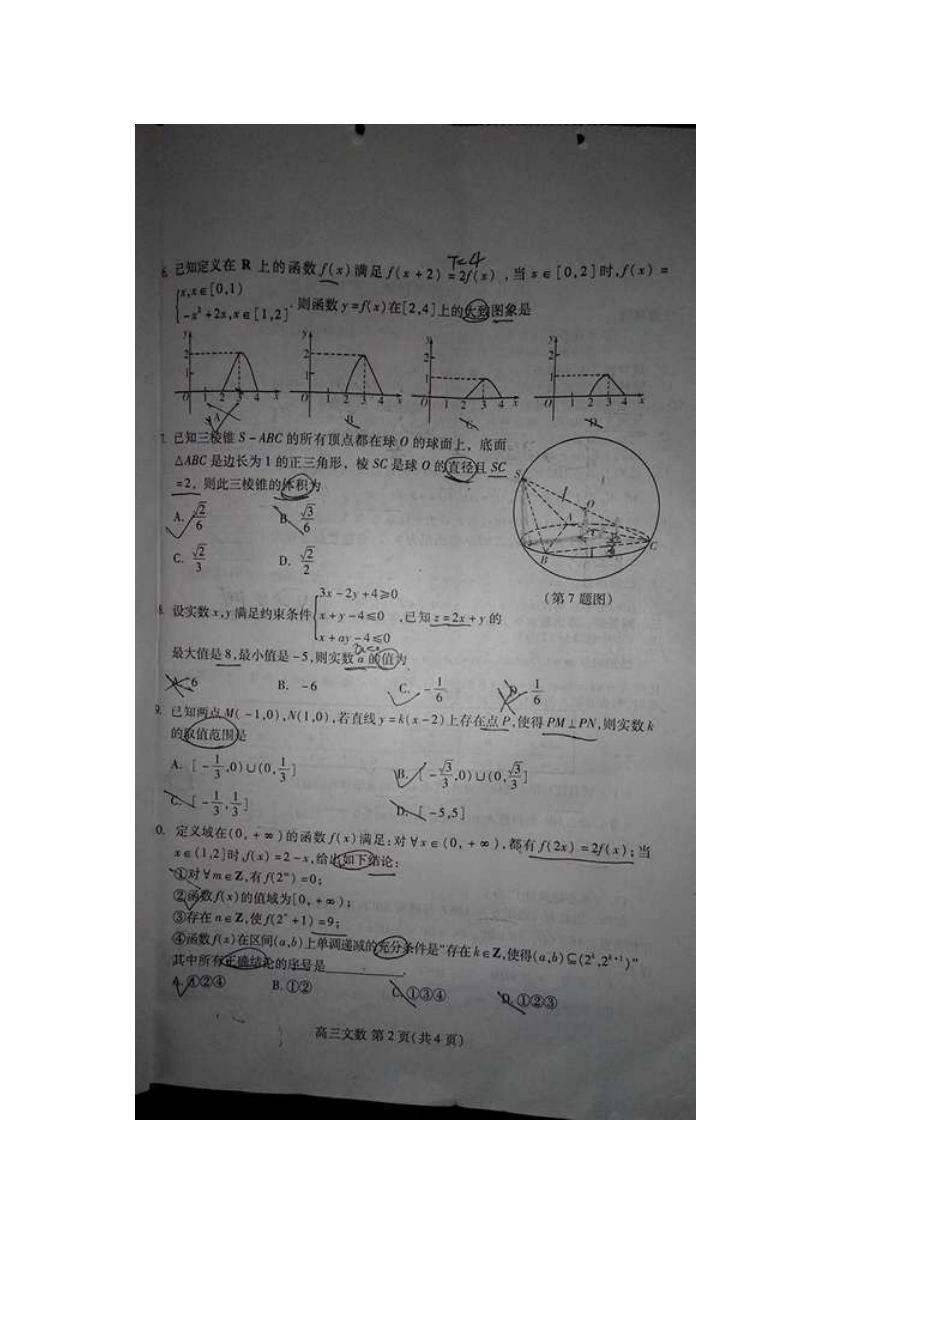 T=4
6. 已知定义在 R 上的函数 f(x) 满足 f(x+2)=2f(x),当 x∈[0,2]时,f(x)=
{x,x∈[0,1)
-x²+2x,x∈[1,2] .则函数 y=f(x)在[2,4]上的大致图象是
A B C D
7. 已知三棱锥 S-ABC 的所有顶点都在球 O 的球面上,底面
△ABC 是边长为 1 的正三角形,棱 SC 是球 O 的直径且 SC
=2,则此三棱锥的体积为
A. √2/6 B. √3/6
C. √2/3 D. √2/2
(第 7 题图)
3x-2y+4≥0
8. 设实数 x,y 满足约束条件{x+y-4≤0 ,已知 z=2x+y 的
x+ay-4≤0
最大值是 8,最小值是 -5,则实数 a 的值为
A. 6 B. -6 C. -1/6 D. 1/6
9. 已知两点 M(-1,0),N(1,0),若直线 y=k(x-2)上存在点 P,使得 PM⊥PN,则实数 k
的取值范围是
A. [-1/3,0)∪(0,1/3] B. [-√3/3,0)∪(0,√3/3]
C. [-1/3,1/3] D. [-5,5]
0. 定义域在(0,+∞)的函数 f(x)满足:对∀x∈(0,+∞),都有 f(2x)=2f(x);当
x∈(1,2]时,f(x)=2-x,给出如下结论:
①对∀m∈Z,有 f(2ᵐ)=0;
②函数 f(x)的值域为[0,+∞);
③存在 n∈Z,使 f(2ⁿ+1)=9;
④函数 f(x)在区间(a,b)上单调递减的充分条件是"存在 k∈Z,使得(a,b)⊆(2ᵏ,2ᵏ⁺¹)"
其中所有正确结论的序号是
A. ①②④ B. ①② C. ①③④ D. ①②③
高三文数 第 2 页(共 4 页)